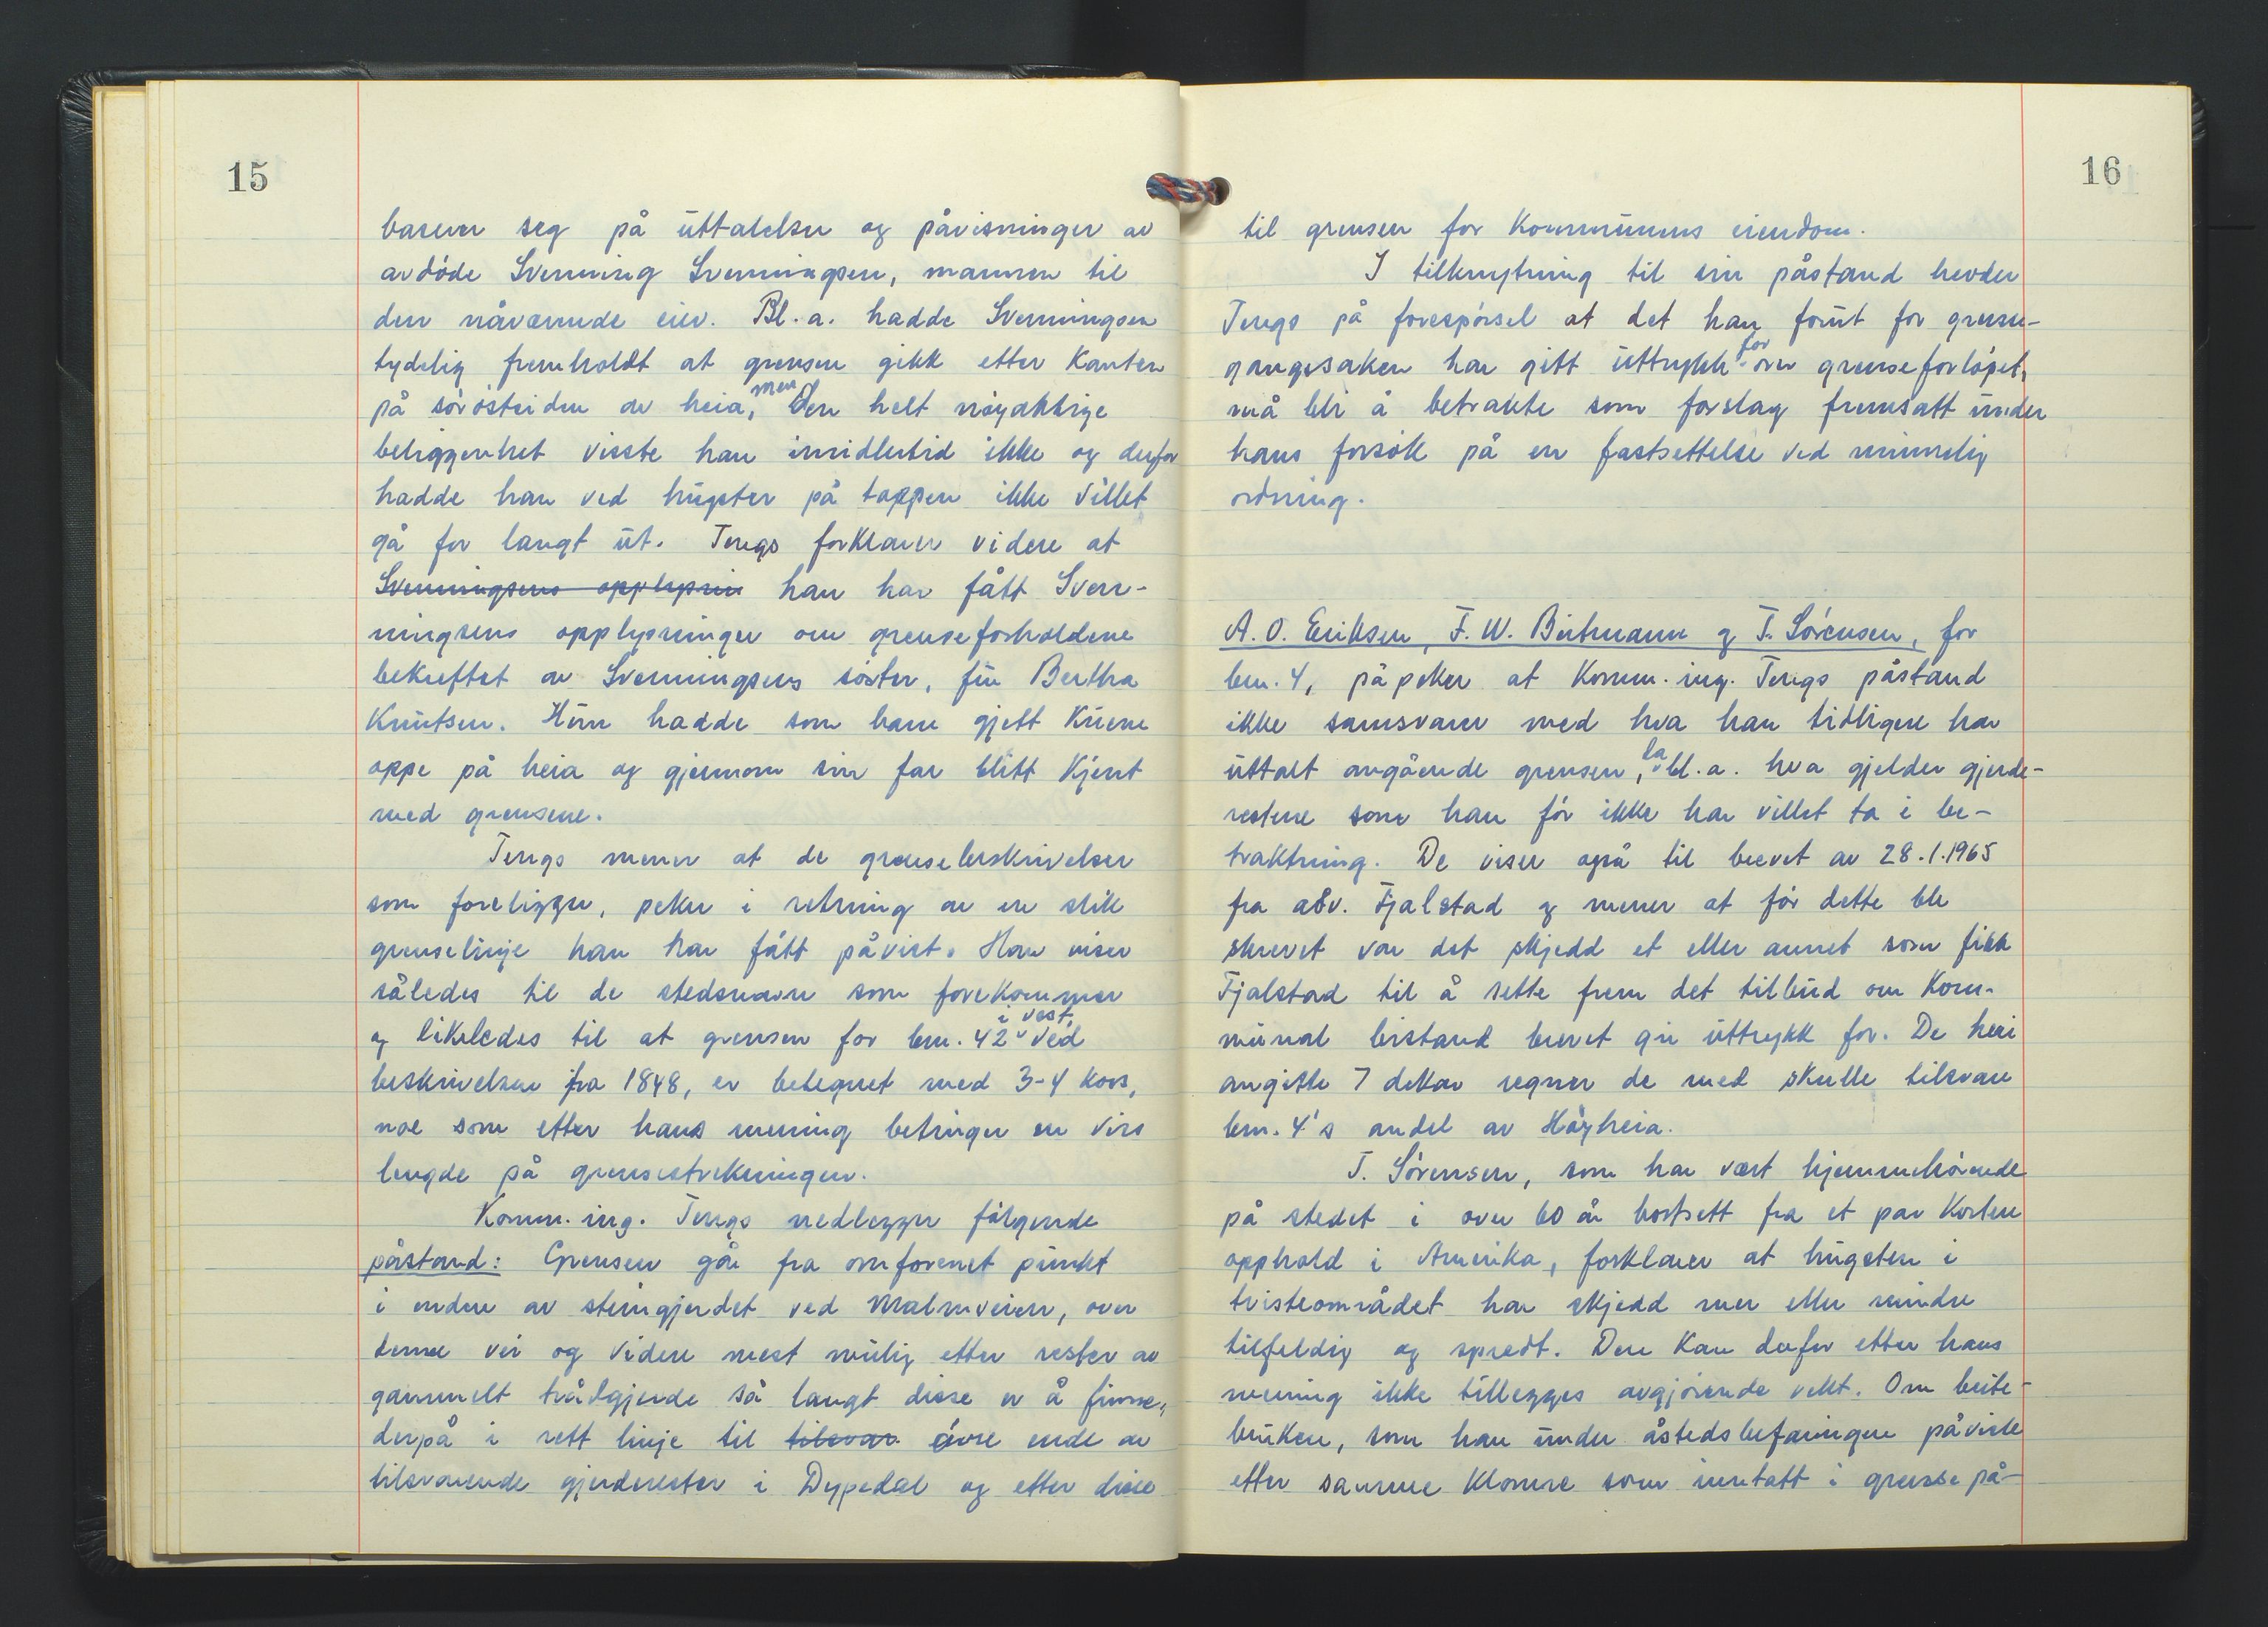 15
baserer seg på uttalelser og påvisninger av
avdøde Svenning Svenningsen, mannen til
den nåværende eier. Bl.a. hadde Svenningsen
tydelig fremholdt at grensen gikk etter kanten
på sørøstsiden av heia, men den helt nøyaktige
beliggenhet visste han imidlertid ikke og derfor
hadde han ved hugster på toppen ikke villet
gå for langt ut. Tengs forklarer videre at
Svenningsens opplysnin han har fått Sven-
ningsens opplysninger om grenseforholdene
bekreftet av Svenningsens søster, fru Bertha
Knutsen. Hun hadde som barn gjett kuene
oppe på heia og gjennom sin far blitt kjent
med grensene.
Tengs mener at de grensebeskrivelser
som foreligger, peker i retning av en slik
grenselinje han har fått påvist. Han viser
således til de stedsnavn som forekommer
og likeledes til at grensen for bnr. 42 i vest, ved
beskrivelsen fra 1848, er betegnet med 3-4 kors,
noe som etter hans mening betinger en viss
lengde på grensestrekningen.
Komm. ing. Tengs nedlegger følgende
påstand: Grensen går fra omforenet punkt
i enden av steingjerdet ved Malmveien, over
denne vei og videre mest mulig etter rester av
gammelt trådgjerde så langt disse er å finne,
derpå i rett linje til tilsvar øvre ende av
tilsvarende gjerderester i Dypedal og etter disse
16
til grensen for kommunens eiendom.
I tilknytning til sin påstand hevder
Tengs på forespørsel at det han forut for grense-
gangssaken har gitt uttrykk for om grenseforløpet,
må bli å betrakte som forslag fremsatt under
hans forsøk på en fastsettelse ved minnelig
ordning.
A. O. Eriksen, F. W. Birkmann og T. Sørensen, for
bnr. 4, påpeker at komm. ing. Tengs påstand
ikke samsvarer med hva han tidligere har
uttalt angående grensen, bl.a. hva gjelder gjerde-
restene som han før ikke har villet ta i be-
traktning. De viser også til brevet av 28.1.1965
fra adv. Fjalstad og mener at før dette ble
skrevet var det skjedd et eller annet som fikk
Fjalstad til å sette frem det tilbud om kom-
munal bistand brevet gir uttrykk for. De heri
angitte 7 dekar regner de med skulle tilsvare
bnr. 4's andel av Høyheia.
T. Sørensen, som har vært hjemmehørende
på stedet i over 60 år bortsett fra et par kortere
opphold i Amerika, forklarer at hugsten i
tvisteområdet har skjedd mer eller mindre
tilfeldig og spredt. Den kan derfor etter hans
mening ikke tillegges avgjørende vekt. Om beite-
bruken, som han under åstedsbefaringen påviste
etter samme klomre som inntatt i grense på-